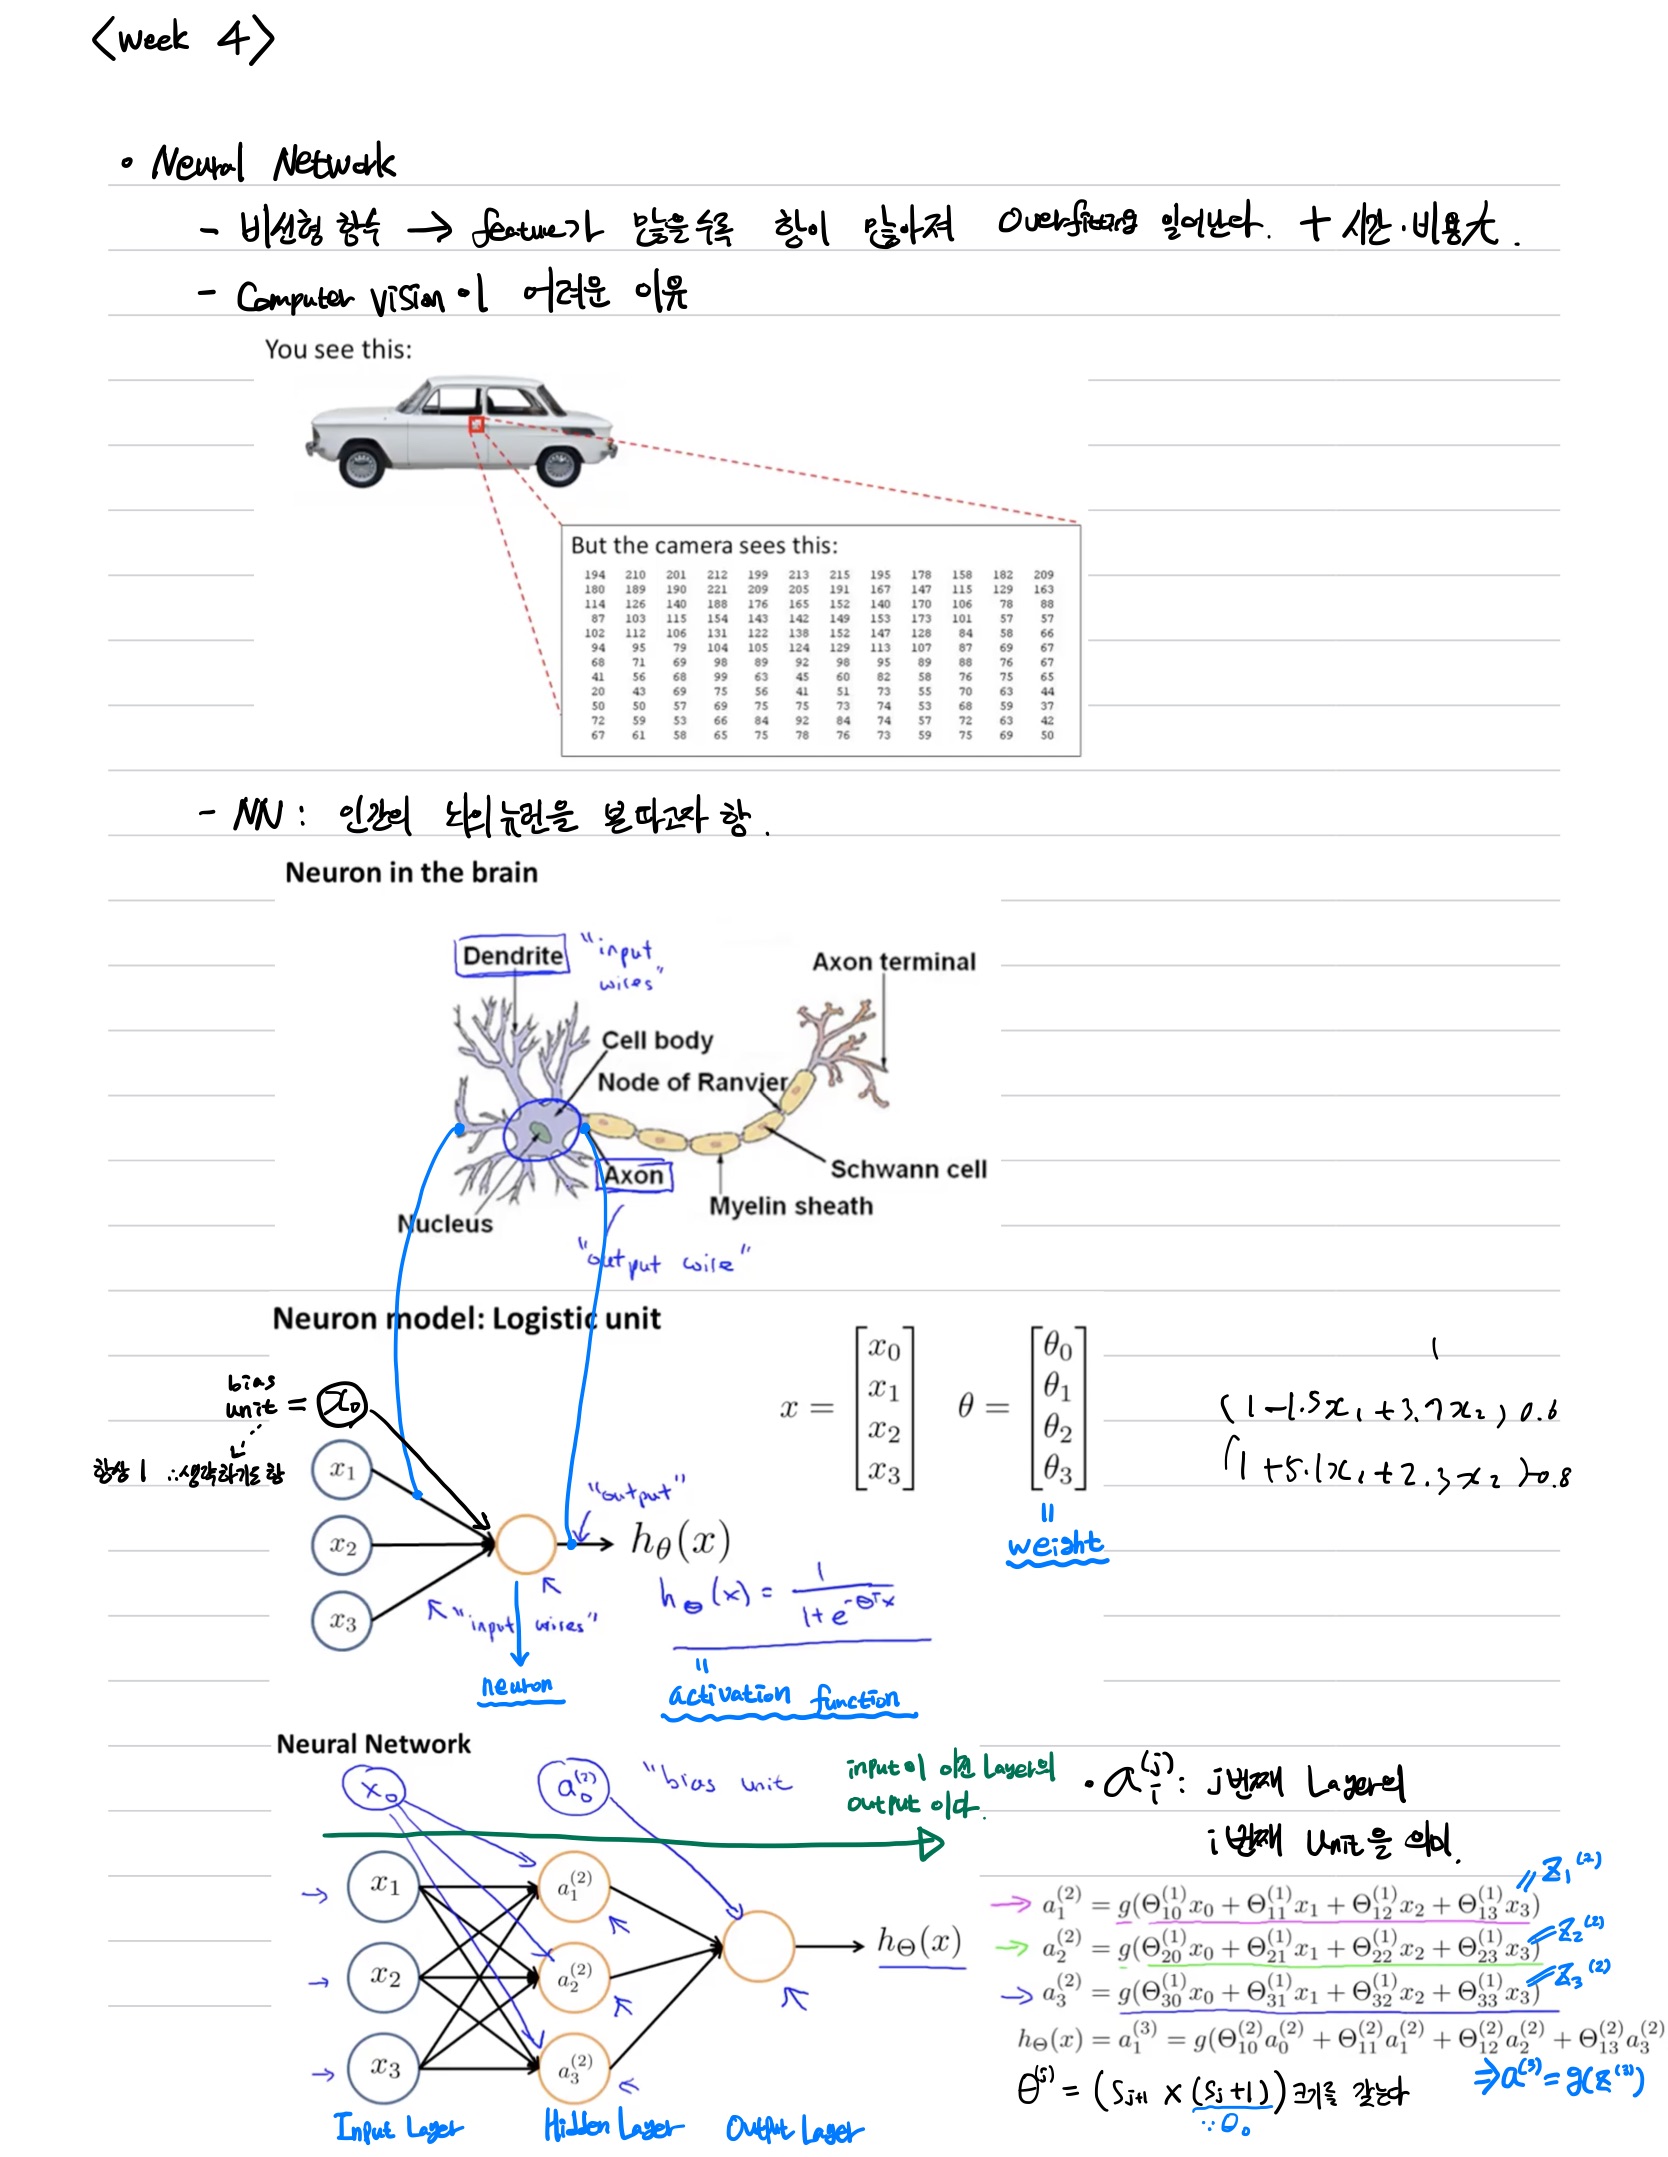 <Week 4>
• Neural Network
- 비선형 함수 → feature가 많을수록 항이 많아져 Overfitting 일어난다. + 시간·비용大.
- Computer vision이 어려운 이유
You see this:
But the camera sees this:
194 210 201 212 199 213 215 195 178 158 182 209
180 189 190 221 209 205 191 167 147 115 129 163
114 126 140 188 176 165 152 140 170 106 78 88
87 103 115 154 143 142 149 153 173 101 57 57
102 112 106 131 122 138 152 147 128 84 58 66
94 95 79 104 105 124 129 113 107 87 69 67
68 71 69 98 89 92 98 95 89 88 76 67
41 56 68 99 63 45 60 82 58 76 75 65
20 43 69 75 56 41 51 73 55 70 63 44
50 50 57 69 75 75 73 74 53 68 59 37
72 59 53 66 84 92 84 74 57 72 63 42
67 61 58 65 75 78 76 73 59 75 69 50
- NN : 인간의 뇌의 뉴런을 본따고자 함.
Neuron in the brain
Dendrite
"input
wires"
Axon terminal
Cell body
Node of Ranvier
Axon
Schwann cell
Myelin sheath
Nucleus
"output wire"
Neuron model: Logistic unit
bias
unit = x₀
항상 1 ∴생략하기도 함
x₁
x₂
x₃
"output"
h_θ(x)
"input wires"
neuron
h_Θ(x) = 1 / (1+e^(-Θᵀx))
=
activation function
x = [x₀ x₁ x₂ x₃]
θ = [θ₀ θ₁ θ₂ θ₃]
=
weight
1
(1-1.5x₁+3.7x₂) 0.6
(1+5.1x₁+2.3x₂) 0.8
Neural Network
x₀
a₀⁽²⁾
"bias unit
input이 이전 Layer의
output 이다.
x₁
x₂
x₃
a₁⁽²⁾
a₂⁽²⁾
a₃⁽²⁾
h_Θ(x)
Input Layer
Hidden Layer
Output Layer
• aᵢ⁽ʲ⁾ : j번째 Layer의
i번째 Unit을 의미.
→ a₁⁽²⁾ = g(Θ₁₀⁽¹⁾x₀ + Θ₁₁⁽¹⁾x₁ + Θ₁₂⁽¹⁾x₂ + Θ₁₃⁽¹⁾x₃) = z₁⁽²⁾
→ a₂⁽²⁾ = g(Θ₂₀⁽¹⁾x₀ + Θ₂₁⁽¹⁾x₁ + Θ₂₂⁽¹⁾x₂ + Θ₂₃⁽¹⁾x₃) = z₂⁽²⁾
→ a₃⁽²⁾ = g(Θ₃₀⁽¹⁾x₀ + Θ₃₁⁽¹⁾x₁ + Θ₃₂⁽¹⁾x₂ + Θ₃₃⁽¹⁾x₃) = z₃⁽²⁾
h_Θ(x) = a₁⁽³⁾ = g(Θ₁₀⁽²⁾a₀⁽²⁾ + Θ₁₁⁽²⁾a₁⁽²⁾ + Θ₁₂⁽²⁾a₂⁽²⁾ + Θ₁₃⁽²⁾a₃⁽²⁾
⇒ a⁽³⁾ = g(z⁽³⁾)
θ⁽ʲ⁾ = (Sⱼ₊₁ × (Sⱼ+1)) 크기를 갖는다
∵ θ₀